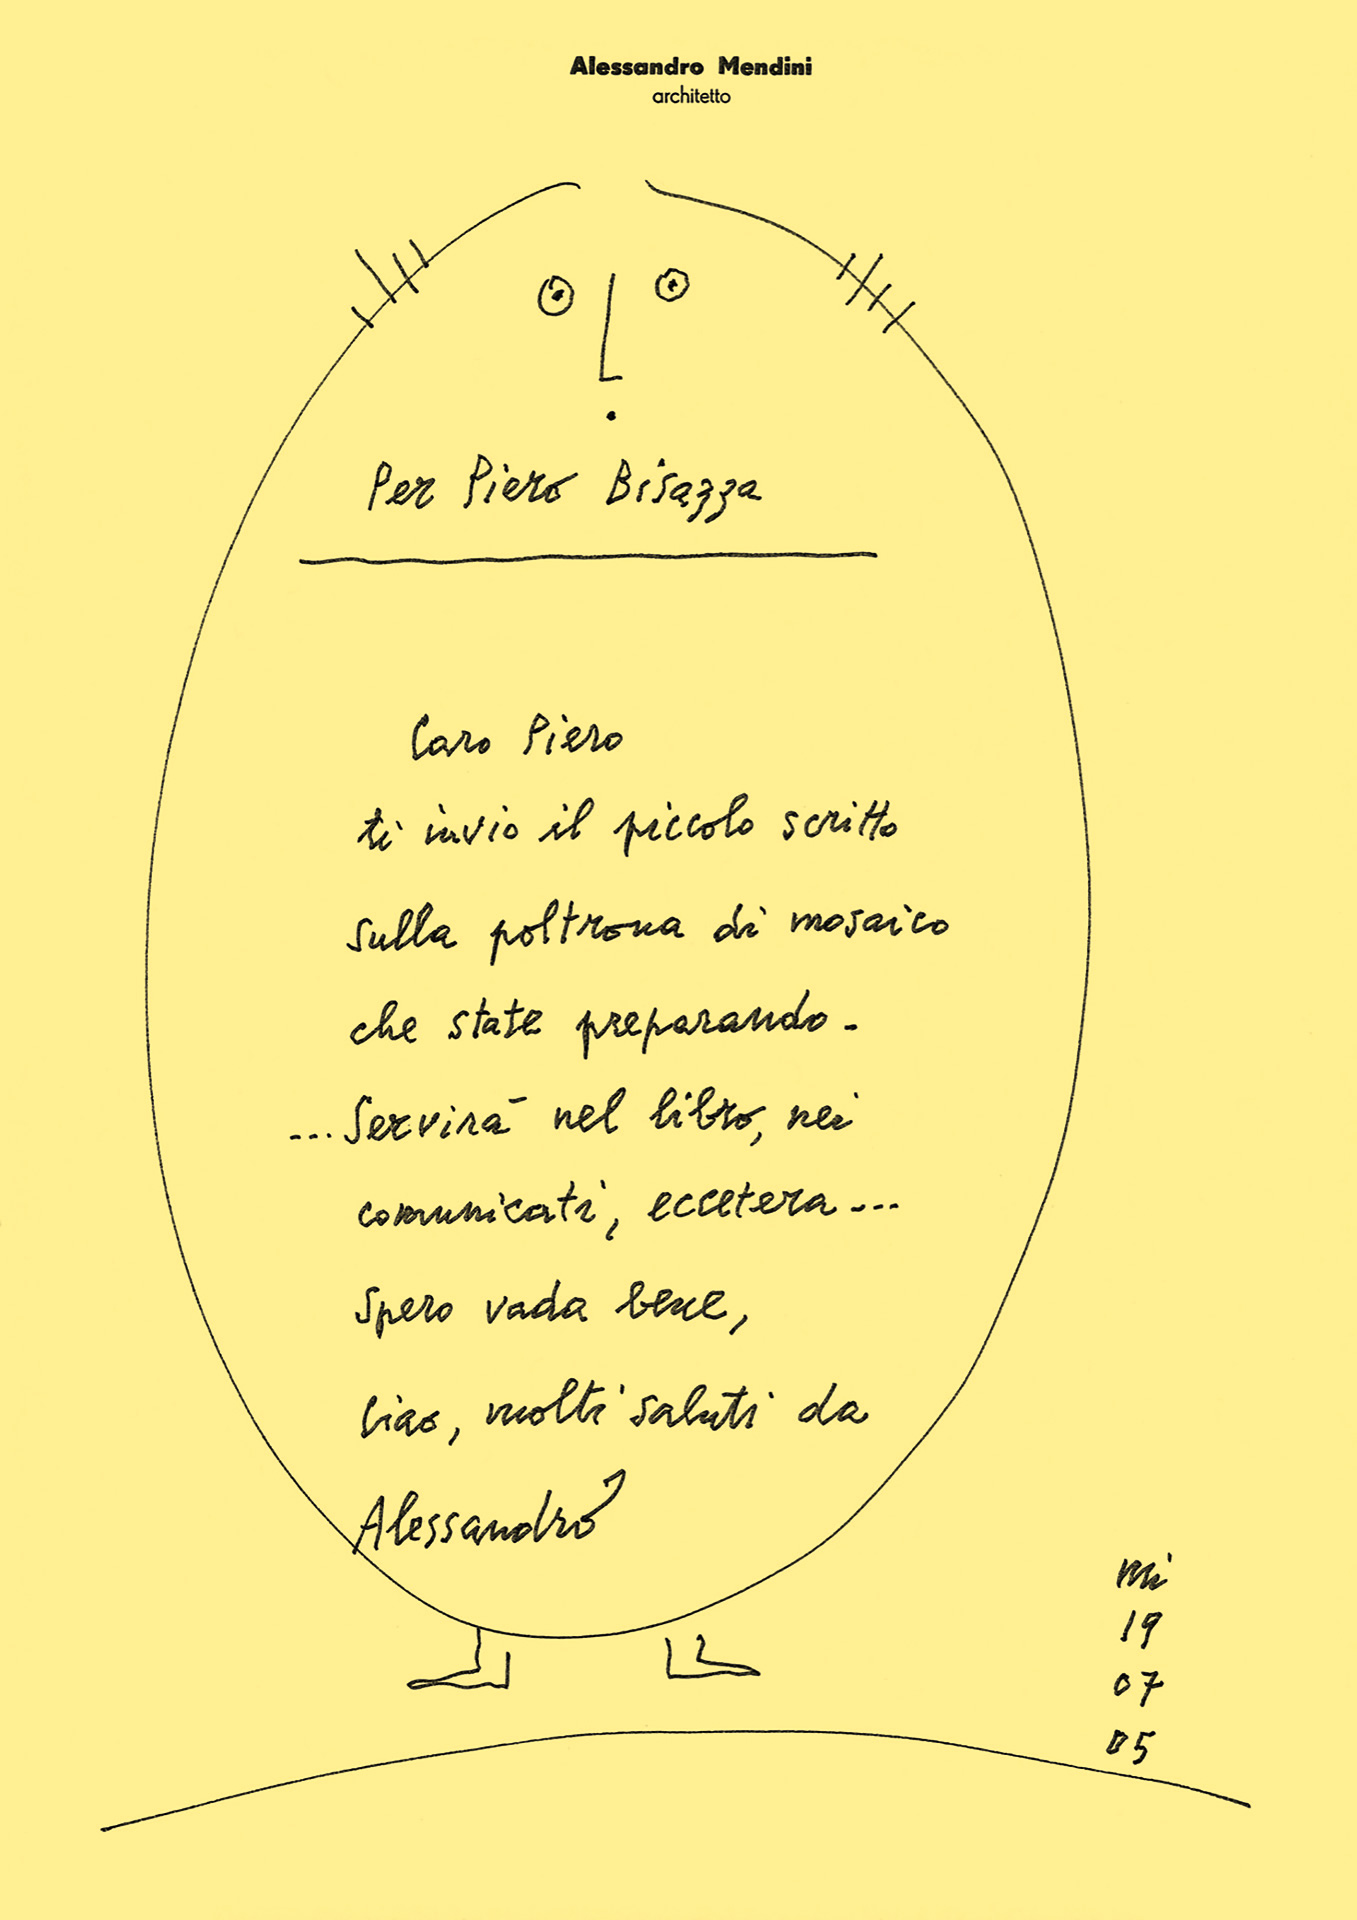 Alessandro Mendini
architetto
Per Piero Bisazza
Caro Piero
ti invio il piccolo scritto
sulla poltrona di mosaico
che state preparando -
... Servirà nel libro, nei
comunicati, eccetera ...
Spero vada bene,
Ciao, molti saluti da
Alessandro
mi
19
07
05